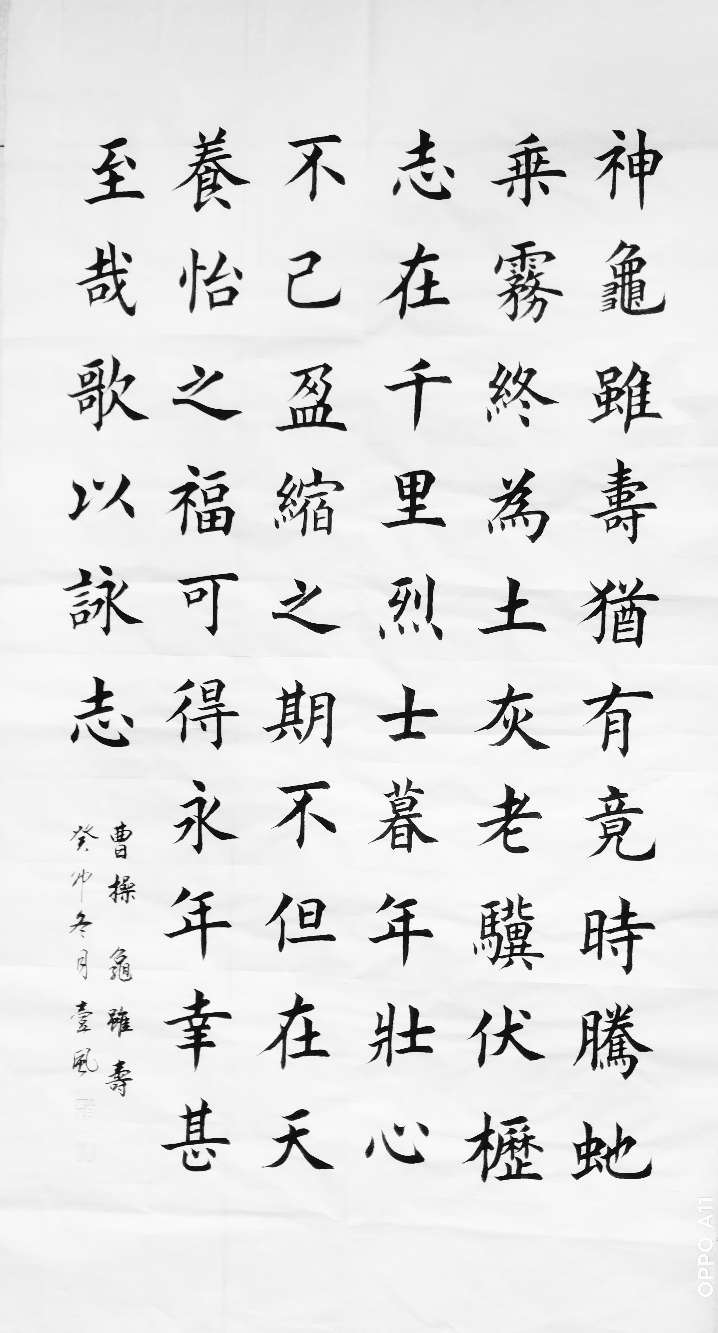 神龜雖壽猶有竟時騰虵
乗霧終為土灰老驥伏櫪
志在千里烈士暮年壯心
不已盈縮之期不但在天
養怡之福可得永年幸甚
至哉歌以詠志
曹操 龜雖壽
癸卯冬月壹風
OPPO A11